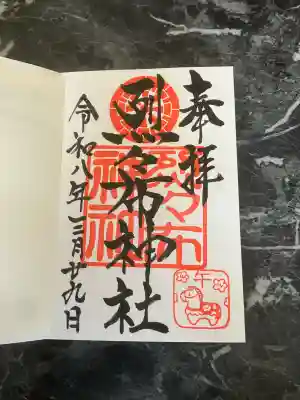 奉拝
烈々布神社
令和八年三月廿九日
烈
烈々布
神社
午